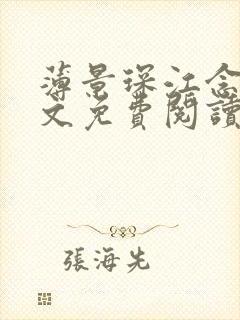 薄景琛江念
文免費閱讀
張海先